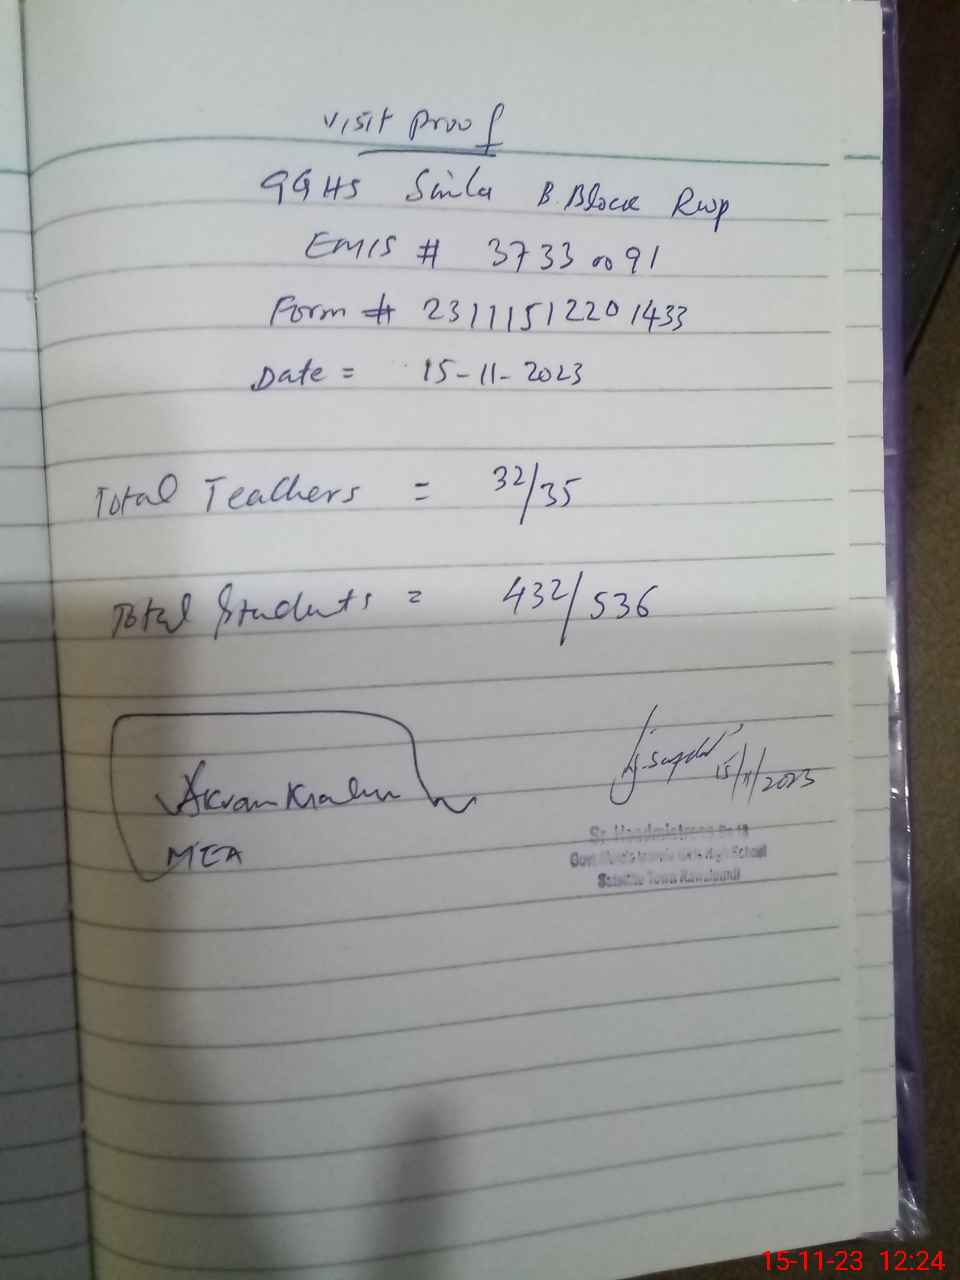 Visit Proof
GGHS Simla B. Block Rwp
EMIS # 37330091
Form # 23111512201433
Date = 15-11-2023
Total Teachers = 32/35
Total Students = 432/536
Akram
MEA
15/11/2023
Sr. Headmistress
Govt. Girls High School
Satellite Town Rawalpindi
15-11-23 12:24